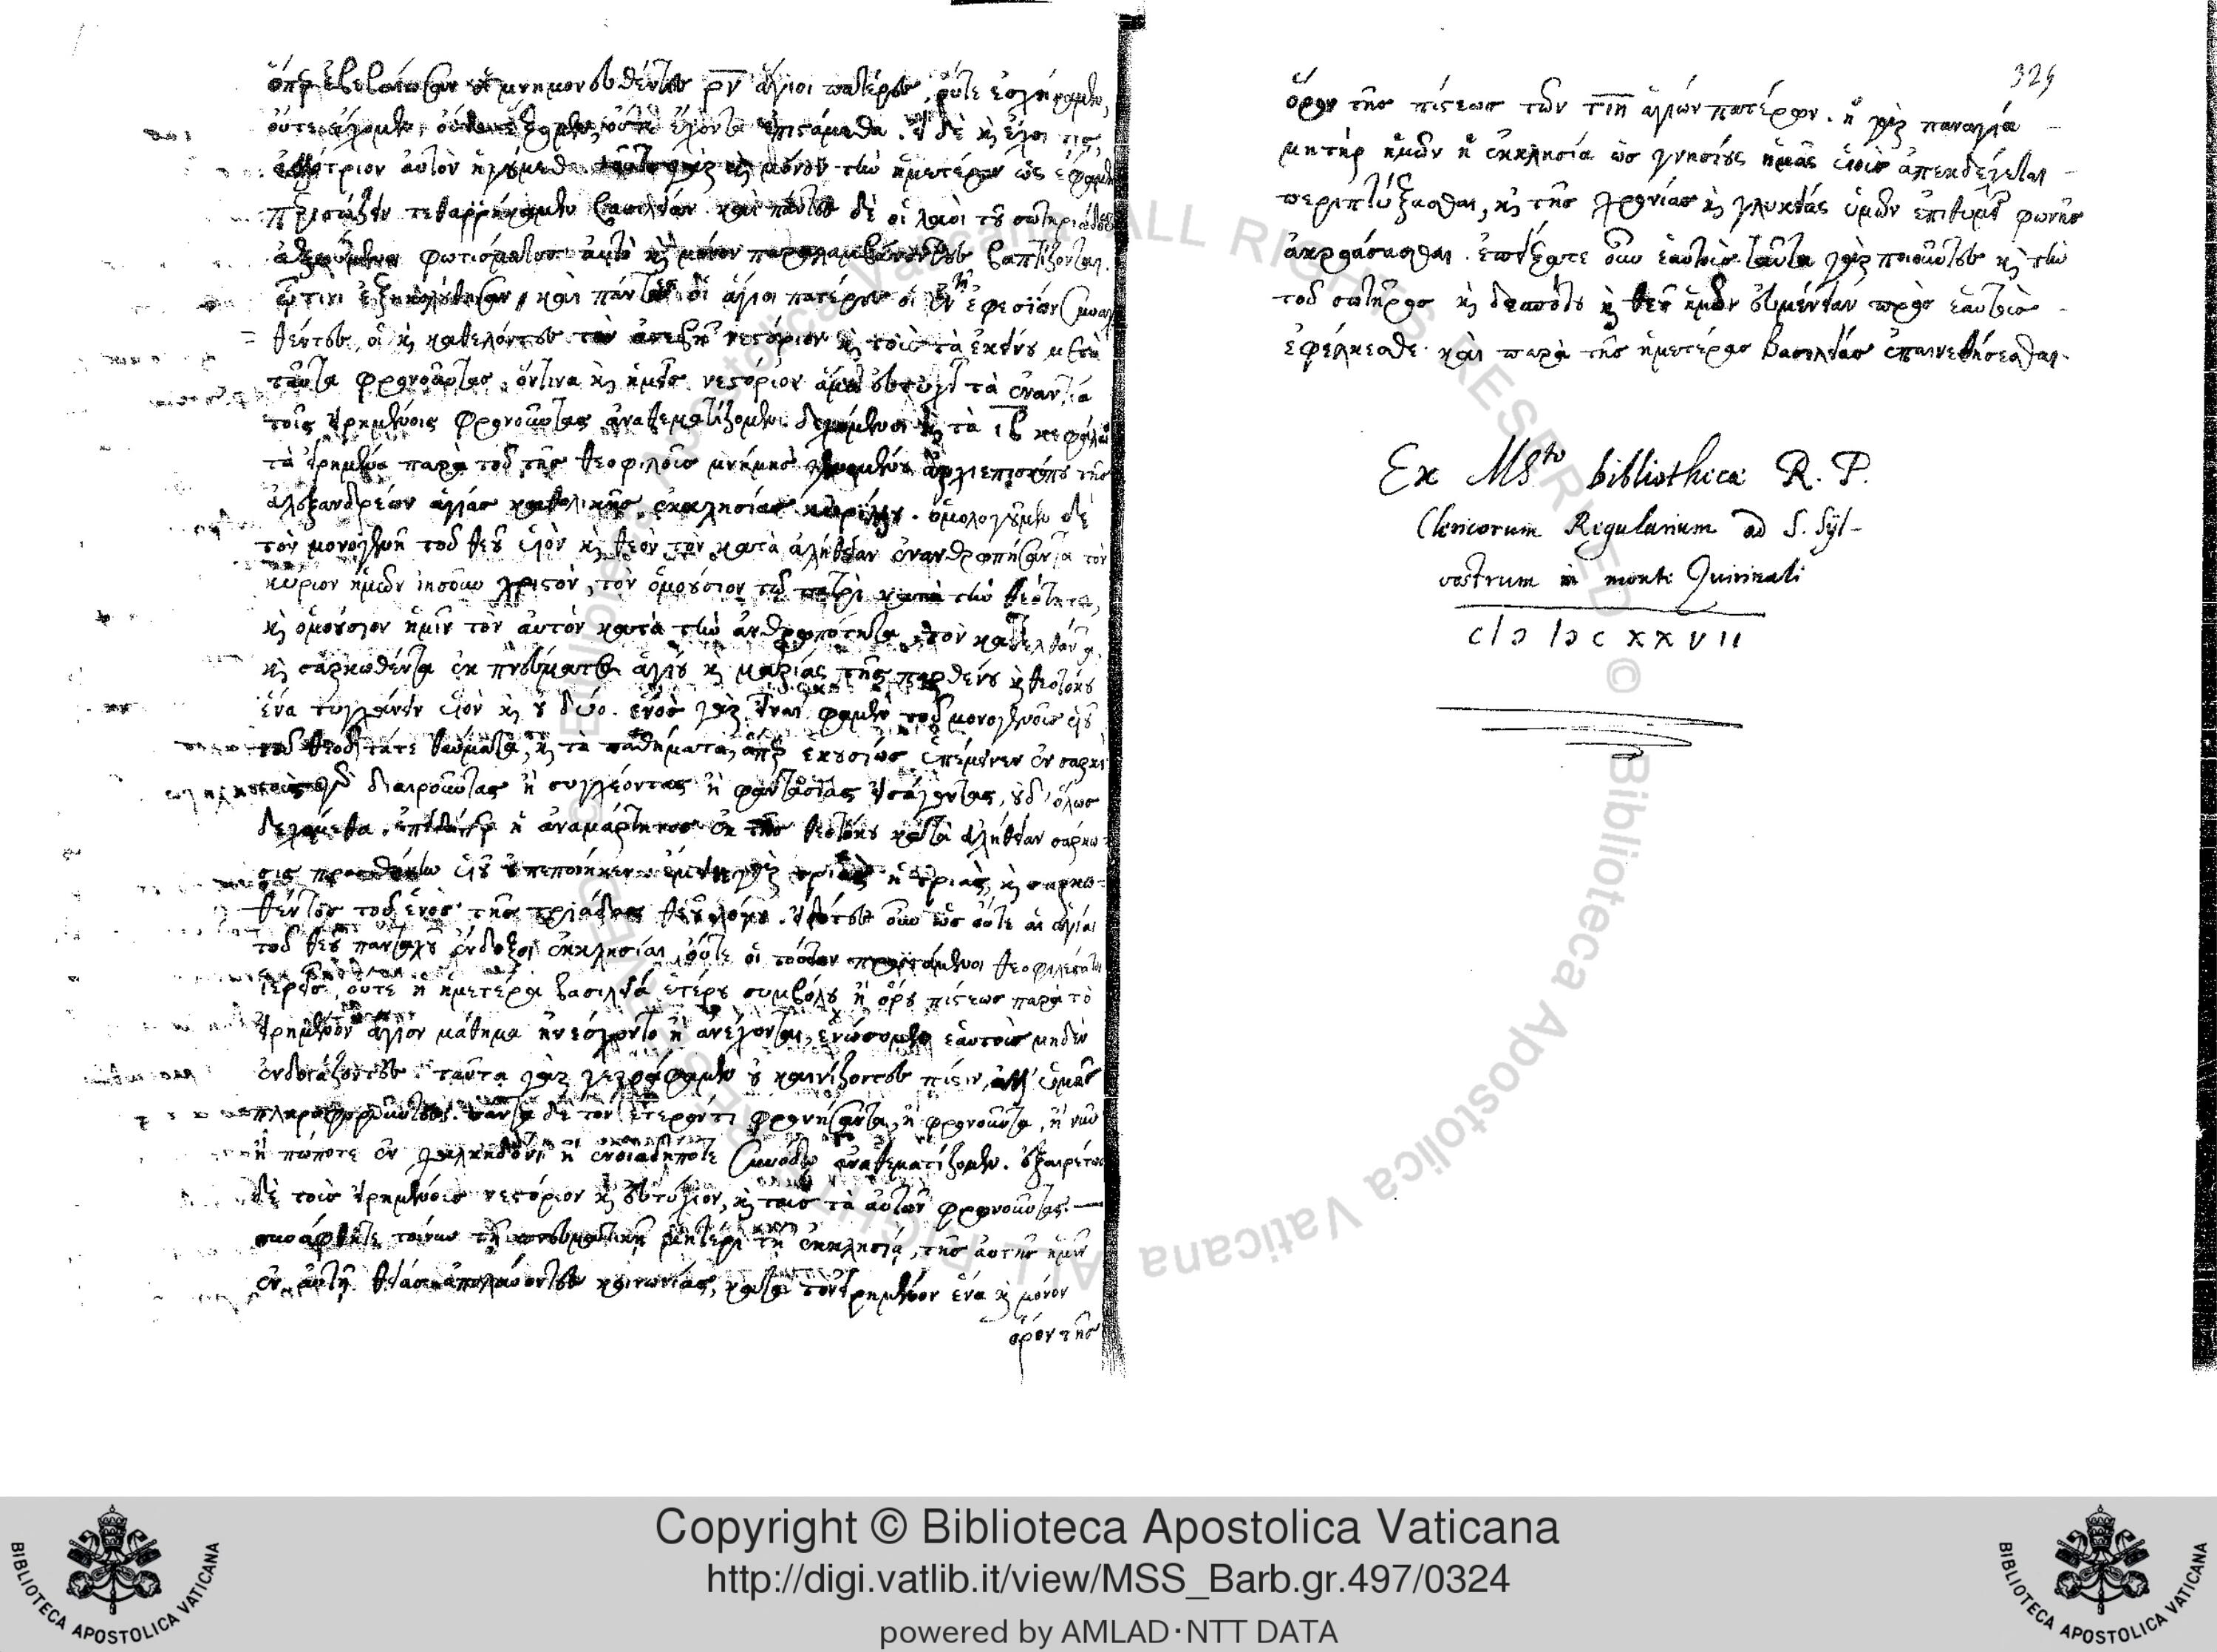 ὅπερ ἐβεβαίωσαν οἱ μνημονευθέντες ρν ἅγιοι πατέρες, οὔτε ἐσχήκαμεν,
οὔτε ἔχομεν, οὔτε ἕξομεν, οὔτε ἔχοντα ἐπιστάμεθα. εἰ δὲ καὶ ἔχοι τις,
ἀλλότριον αὐτὸν ἡγούμεθα. τοῦτο γὰρ καὶ μόνον τὴν ἡμετέραν ὡς ἔφαμεν
περισώζειν τεθαρρήκαμεν βασιλείαν. καὶ πάντες δὲ οἱ λαοὶ τοῦ σωτηριώδους
ἀξιούμενοι φωτίσματος αὐτὸ καὶ μόνον παραλαμβάνοντες βαπτίζονται.
ᾧτινι ἐξηκολούθησαν καὶ πάντες οἱ ἅγιοι πατέρες οἱ ἐν τῇ ἐφεσίων συνελ
θέντες, οἱ καὶ καθελόντες τὸν ἀσεβῆ νεστόριον καὶ τοὺς τὰ ἐκείνου μετὰ
ταῦτα φρονοῦντας. ὅντινα καὶ ἡμεῖς νεστόριον ἅμα εὐτυχεῖ τὰ ἐναντία
τοῖς εἰρημένοις φρονοῦντας ἀναθεματίζομεν. δεχόμενοι καὶ τὰ ιβ κεφάλαια
τὰ εἰρημένα παρὰ τοῦ τῆς θεοφιλοῦς μνήμης γενομένου ἀρχιεπισκόπου τῆς
ἀλεξανδρέων ἁγίας καθολικῆς ἐκκλησίας κυρίλλου. ὁμολογοῦμεν δὲ
τὸν μονογενῆ τοῦ θεοῦ υἱὸν καὶ θεὸν τὸν κατὰ ἀλήθειαν ἐνανθρωπήσαντα τὸν
κύριον ἡμῶν ἰησοῦν χριστὸν, τὸν ὁμοούσιον τῷ πατρὶ κατὰ τὴν θεότητα,
καὶ ὁμοούσιον ἡμῖν τὸν αὐτὸν κατὰ τὴν ἀνθρωπότητα, τὸν κατελθόντα
καὶ σαρκωθέντα ἐκ πνεύματος ἁγίου καὶ μαρίας τῆς παρθένου καὶ θεοτόκου
ἕνα τυγχάνειν υἱὸν καὶ οὐ δύο. ἑνὸς γὰρ εἶναί φαμεν τοῦ μονογενοῦς υἱοῦ
τοῦ θεοῦ τά τε θαύματα, καὶ τὰ παθήματα, ἅπερ ἑκουσίως ὑπέμεινεν ἐν σαρκί
τοὺς γὰρ διαιροῦντας ἢ συγχέοντας ἢ φαντασίας εἰσάγοντας, οὐδ' ὅλως
δεχόμεθα. ἐπειδήπερ ἡ ἀναμάρτητος ἐκ τῆς θεοτόκου κατὰ ἀλήθειαν σάρκω-
σις προσθήκην υἱοῦ οὐ πεποίηκεν. ἐμεινε γὰρ τριὰς ἡ τριὰς, καὶ σαρκω-
θέντος τοῦ ἑνὸς τῆς τριάδος θεοῦ λόγου. εἰδότες οὖν ὡς οὔτε αἱ ἅγιαι
τοῦ θεοῦ πανταχοῦ ἔνδοξοι ἐκκλησίαι, οὔτε οἱ τούτων προϊστάμενοι θεοφιλέστατοι
ἱερεῖς, οὔτε ἡ ἡμετέρα βασιλεία ἑτέρου συμβόλου ἢ ὅρου πίστεως παρὰ τὸ
εἰρημένον ἅγιον μάθημα ἠνέσχοντο ἢ ἀνέχονται, ἑνώσομεν ἑαυτοὺς μηδὲν
ἐνδοιάζοντες. ταῦτα γὰρ γεγράφαμεν οὐ καινίζοντες πίστιν, ἀλλ' ὑμᾶς
πληροφοροῦντες. πάντα δὲ τὸν ἕτερόν τι φρονήσαντα, ἢ φρονοῦντα, ἢ νῦν
ἢ πώποτε ἐν χαλκηδόνι ἢ ἐν οἱαδήποτε συνόδῳ ἀναθεματίζομεν. ἐξαιρέτως
δὲ τοὺς εἰρημένους νεστόριον καὶ εὐτυχέον, καὶ τοὺς τὰ αὐτῶν φρονοῦντας.—
συνάφθητε τοίνυν τῇ πνευματικῇ μητέρι τῇ ἐκκλησίᾳ, τῆς αὐτῆς ἡμῖν
ἐν αὐτῇ θείας ἀπολαύοντες κοινωνίας, κατὰ τὸν εἰρημένον ἕνα καὶ μόνον
ὅρον τῆς
329
ὅρον τῆς πίστεως τῶν τιη ἁγίων πατέρων. ἡ γὰρ παναγία
μητὴρ ἡμῶν ἡ ἐκκλησία ὡς γνησίους ἡμᾶς υἱοὺς ἀπεκδέχεται
περιπτύξασθαι, καὶ τῆς χρονίας καὶ γλυκείας ὑμῶν ἐπιθυμεῖ φωνῆς
ἀκροάσασθαι. ἐπείξατε οὖν ἑαυτοὺς ταῦτα γὰρ ποιοῦντες καὶ τὴν
τοῦ σωτῆρος καὶ δεσπότου καὶ θεοῦ ἡμῶν εὐμένειαν πρὸς ἑαυτοὺς
ἐφέλκεσθε. καὶ παρὰ τῆς ἡμετέρας βασιλείας ἐπαινεθήσεσθαι.
Ex MSto bibliotheca R. P.
Clericorum Regularium ad S. Syl-
vestrum in monte Quirinali
cIↄ Iↄc xxvii
Copyright © Biblioteca Apostolica Vaticana
http://digi.vatlib.it/view/MSS_Barb.gr.497/0324
powered by AMLAD·NTT DATA